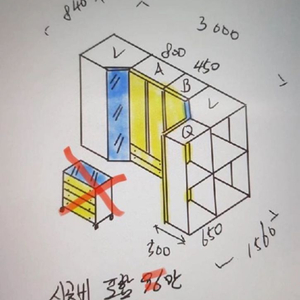 840
3000
800
450
V
A
B
V
Q
300
650
1560
시공비 포함 36만